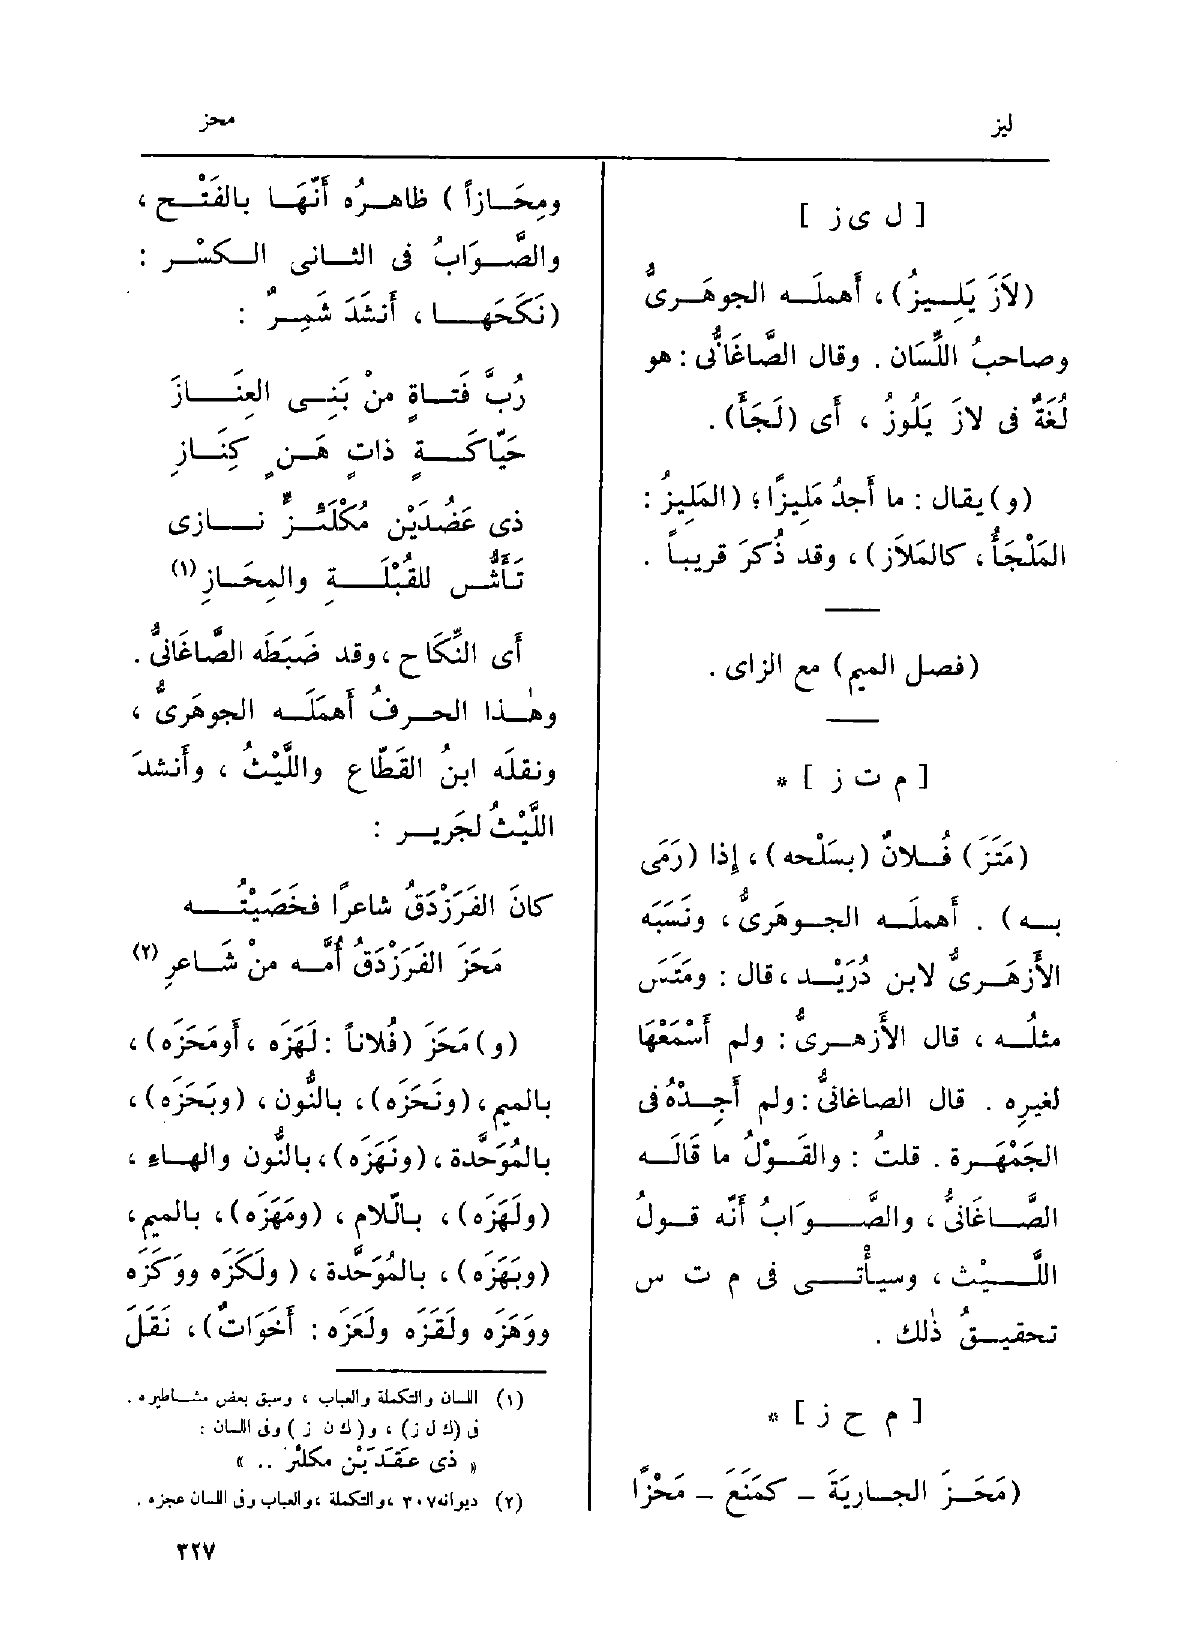 ليز
محز
[ ل ى ز ]
(لاَزَ يَلِيزُ) ، أَهمله الجوهَرىُّ
وصاحبُ اللِّسَان . وقال الصَّاغَانُّى : هو
لُغَةٌ فى لاَزَ يَلُوزُ ، أَى (لَجَأَ) .
(و) يقال : ما أَجدُ مَلِيزًا ؛ (المَلِيزُ :
المَلْجَأُ ، كالمَلاَزِ) ، وقد ذُكرَ قريباً .
(فصل الميم) مع الزاى .
[ م ت ز ] *
(مَتَزَ) فُلانٌ (بسَلْحه) ، إِذا (رَمَى
بـه) . أَهمله الجوهرىُّ ، ونَسَبَه
الأَزهَرىُّ لابن دُرَيْد ، قال : ومَتَس
مثلُه ، قال الأَزهرىُّ : ولم أَسْمَعْهَا
لغيرِه . قال الصاغانىُّ : ولم أَجِدْهُ فى
الجَمْهَرة . قلتُ : والقَولُ ما قَالَه
الصَّاغَانىُّ ، والصَّوَابُ أَنَّه قولُ
اللَّيْث ، وسيأْتى فى م ت س
تحقيقُ ذٰلك .
[ م ح ز ] *
(مَحَزَ الجاريَةَ - كمَنَعَ - مَحْزًا
ومِحَازاً ) ظاهرُه أَنَّهَا بالفَتْح ،
والصَّوَابُ فى الثانى الكسْر :
(نَكَحَهَا ، أَنشَدَ شَمِرٌ :
رُبَّ فَتَاةٍ منْ بَنِى العِنَازِ
حَيَّاكَةٍ ذاتِ هَنٍ كِنَازِ
ذى عَضُدَيْن مُكْلَئِزٍّ نَازى
تَأَشُّ للقُبْلَةِ والمِحَازِ (١)
أَى النِّكَاح ، وقد ضَبَطَه الصَّاغَانىُّ .
وهٰذا الحرفُ أَهمَلَه الجوهَرىُّ ،
ونقلَه ابنُ القَطَّاع واللَّيْثُ ، وأَنشدَ
اللَّيْثُ لجَرير :
كانَ الفَرَزْدَقُ شاعرًا فخَصَيْتُه
مَحَزَ الفَرَزْدَقُ أُمَّه منْ شَاعرِ (٢)
(و) مَحَزَ (فُلاناً : لَهَزَه ، أَومَحَزَه) ،
بالميم ، (ونَحَزَه) ، بالنُّون ، (وبَحَزَه) ،
بالمُوَحَّدة ، (ونَهَزَه) ، بالنُّون والهاءِ ،
(ولَهَزَه) ، باللّام ، (ومَهَزَه) ، بالميم ،
(وبَهَزَه) ، بالمُوَحَّدة ، ( ولَكَزَه ووَكَزَه
ووَهَزَه ولَقَزَه ولَعَزَه : أَخوَاتٌ) ، نَقَلَ
(١) اللسان والتكملة والعباب ، وسبق بعض مشاطيره .
فى (ك ل ز) ، و( ك ن ز ) وفى اللسان :
« ذى عَقَدَيْن مكلئز .. »
(٢) ديوانه ٣٠٧ ، والتكملة ، والعباب وفى اللسان عجزه .
٣٢٧